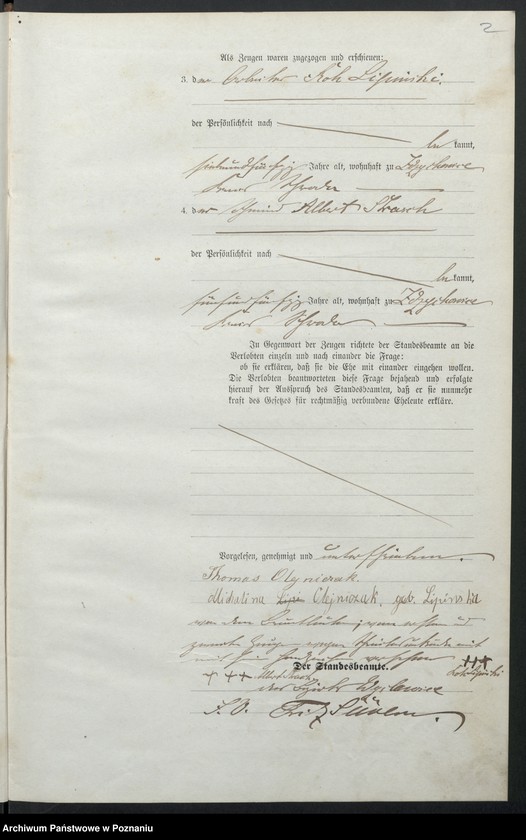 2
Als Zeugen waren zugezogen und erschienen:
3. der Arbeiter Roh Lipinski.
der Persönlichkeit nach
bekannt,
siebenundfünfzig Jahre alt, wohnhaft zu Zdzychowice
Kreis Schroda
4. der Schmied Albert Strasch
der Persönlichkeit nach
bekannt,
fünfundfünfzig Jahre alt, wohnhaft zu Zdzychowice
Kreis Schroda
In Gegenwart der Zeugen richtete der Standesbeamte an die
Verlobten einzeln und nach einander die Frage:
ob sie erklären, daß sie die Ehe mit einander eingehen wollen.
Die Verlobten beantworteten diese Frage bejahend und erfolgte
hierauf der Ausspruch des Standesbeamten, daß er sie nunmehr
kraft des Gesetzes für rechtmäßig verbundene Eheleute erkläre.
Vorgelesen, genehmigt und unterschrieben.
Thomas Olyniczak
Michalina Lipin Olejniczak, geb. Lipinska
von den Brautleuten, vom ersten und
zweiten Zeugen wegen Schreibensunkunde mit
Handzeichen versehen +++
Der Standesbeamte.
+ ++ Roh Lipinski
des Bezirks
I. V. Fritz
Archiwum Państwowe w Poznaniu